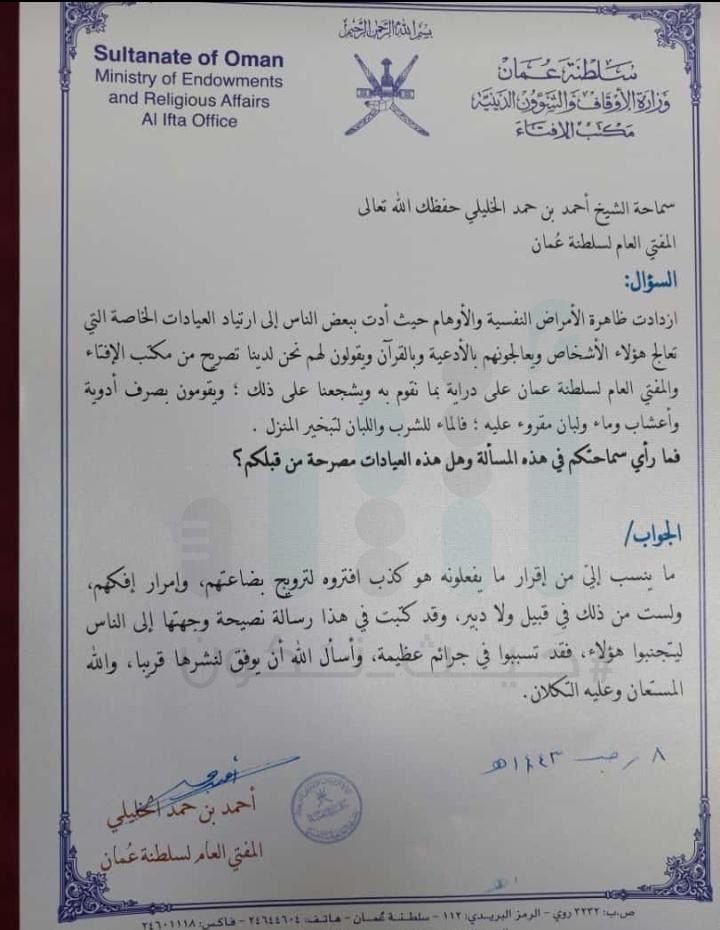 بسم الله الرحمن الرحيم
Sultanate of Oman
Ministry of Endowments
and Religious Affairs
Al Ifta Office
سلطنة عمان
وزارة الأوقاف والشؤون الدينية
مكتب الإفتاء
سماحة الشيخ أحمد بن حمد الخليلي حفظك الله تعالى
المفتي العام لسلطنة عُمان
السؤال:
ازدادت ظاهرة الأمراض النفسية والأوهام حيث أدت ببعض الناس إلى ارتياد العيادات الخاصة التي
تعالج هؤلاء الأشخاص ويعالجونهم بالأدعية وبالقرآن ويقولون لهم نحن لدينا تصريح من مكتب الإفتاء
والمفتي العام لسلطنة عمان على دراية بما نقوم به ويشجعنا على ذلك ؛ ويقومون بصرف أدوية
وأعشاب وماء ولبان مقروء عليه ؛ فالماء للشرب واللبان لتبخير المنزل .
فما رأي سماحتكم في هذه المسألة وهل هذه العيادات مصرحة من قبلكم؟
الجواب/
ما ينسب إليّ من إقرار ما يفعلونه هو كذب افتروه لترويج بضاعتهم، وإمرار إفكهم،
ولست من ذلك في قبيل ولا دبير، وقد كتبت في هذا رسالة نصيحة وجهتها إلى الناس
ليتجنبوا هؤلاء، فقد تسببوا في جرائم عظيمة، وأسأل الله أن يوفق لنشرها قريبا، والله
المستعان وعليه التكلان.
#حيث_تكون
٨ رجب ١٤٤٣هـ
أحمد بن حمد الخليلي
المفتي العام لسلطنة عُمان
ص.ب: ٢٢٣٢ روي - الرمز البريدي: ١١٢ - سلطنة عُمان - هاتف: ٢٤٦٤٤٦٠٤ - فاكس: ٢٤٦٠١١١٨